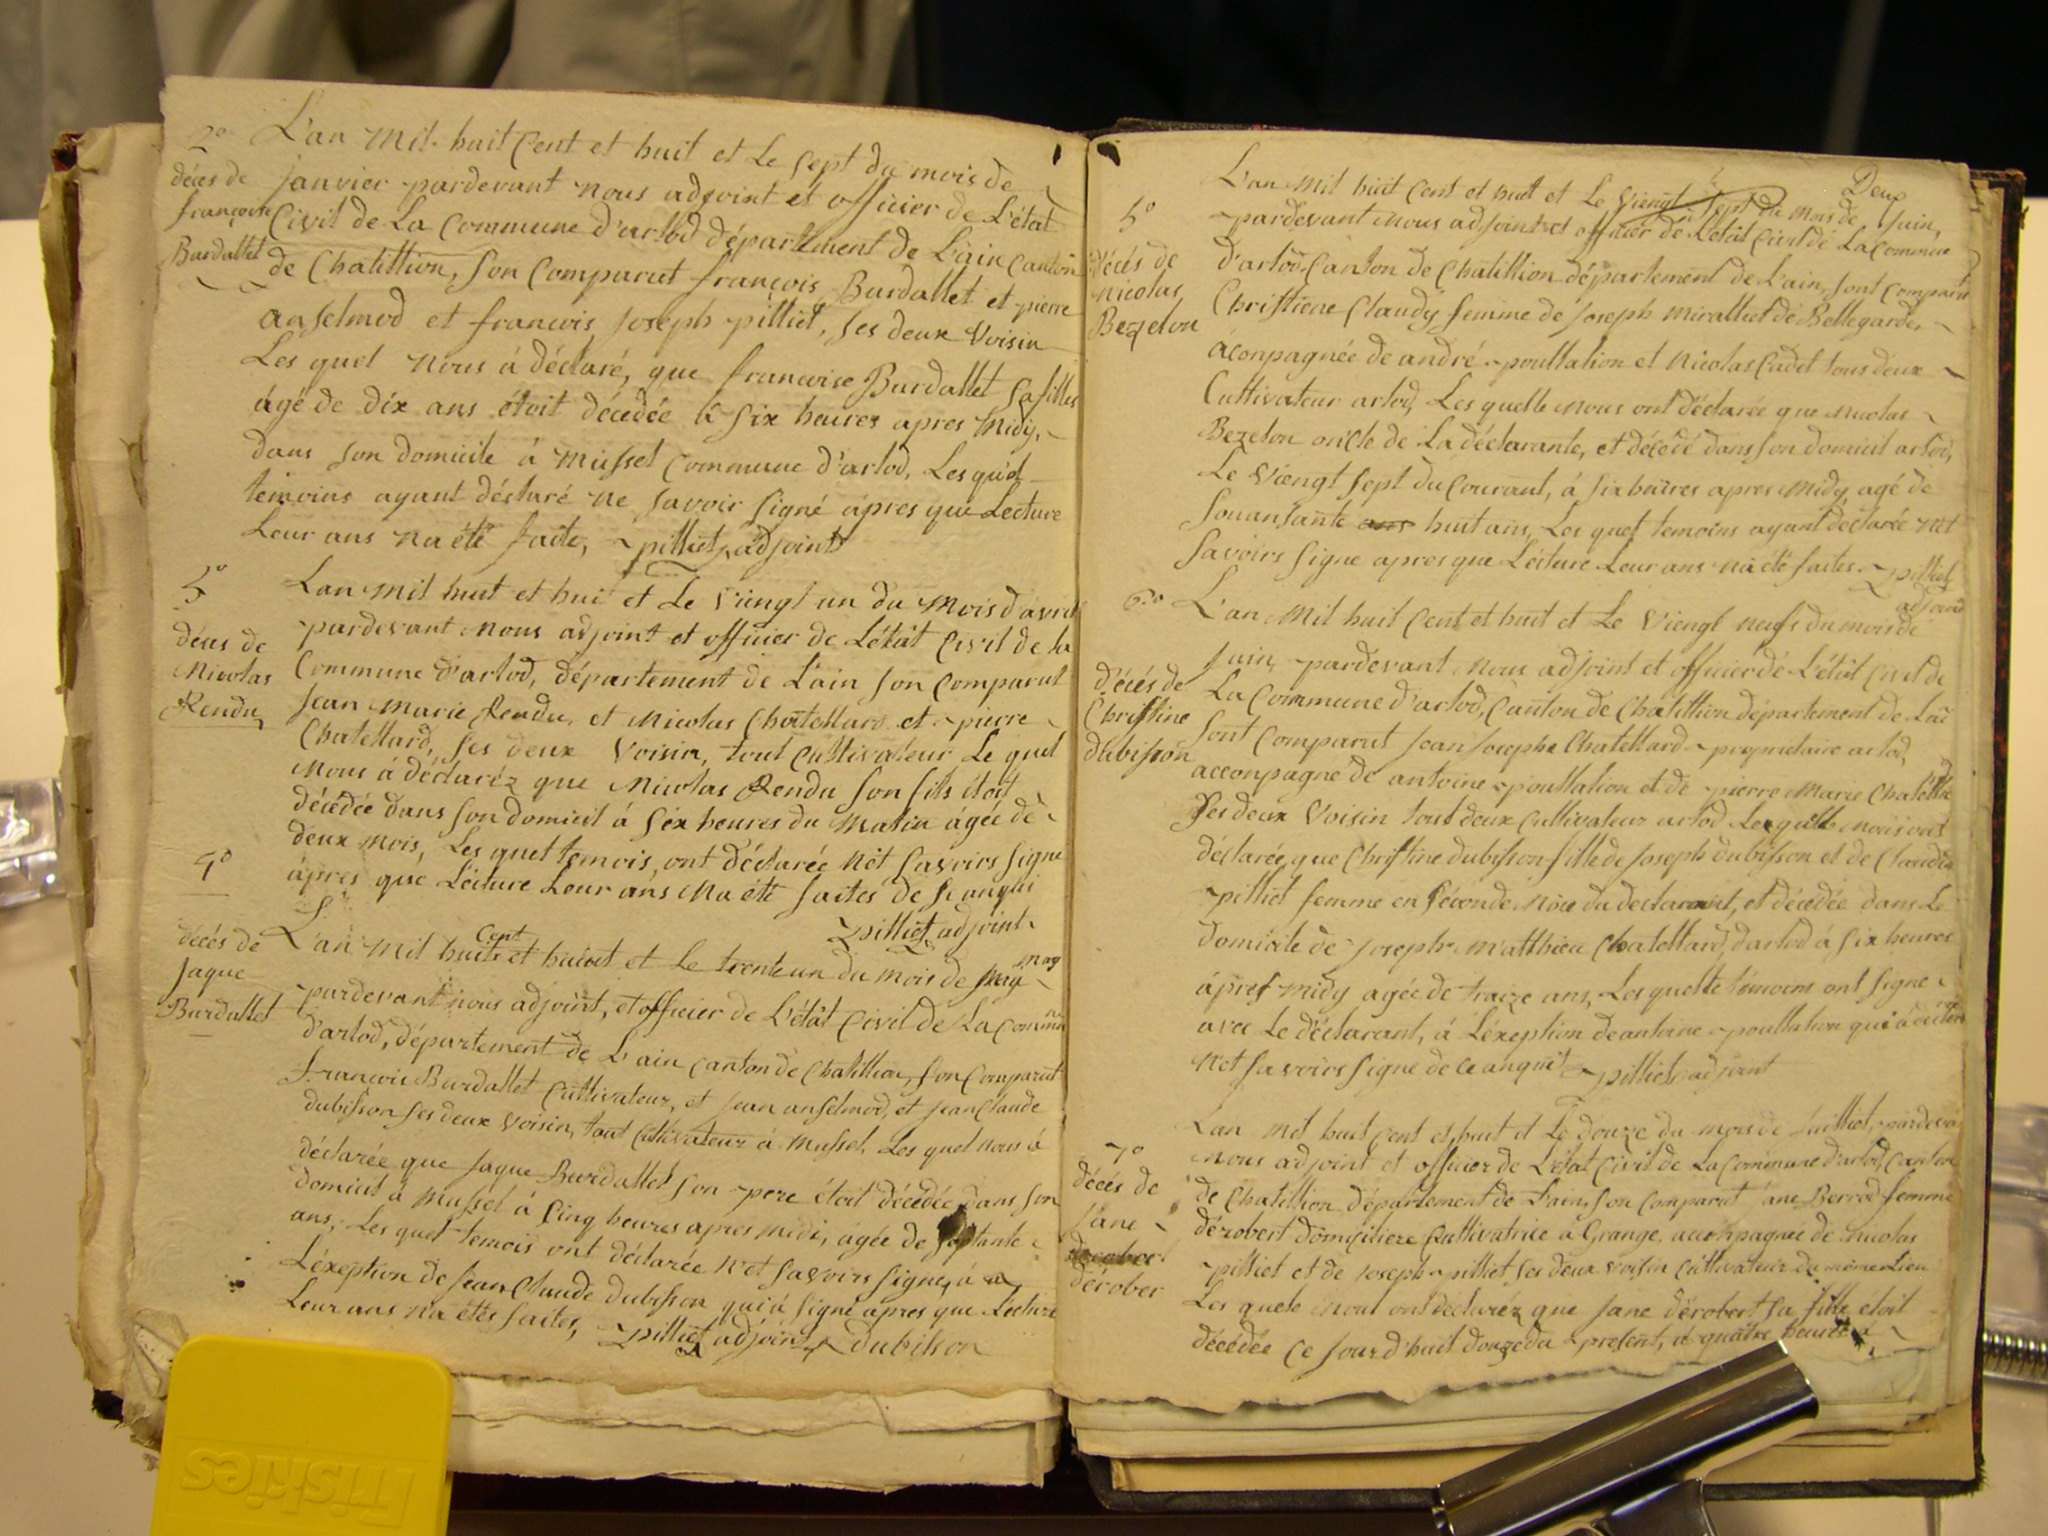 2°
décès de
françoise
Burdallet
L'an mil huit Cent et huit et Le sept du mois de
janvier pardevant nous adjoint et officier de L'état
Civil de La Commune d'arlod département de L'ain canton
de Chatillion, son Comparut françois Burdallet et pierre
anselmod et francois joseph pilliet, ses deux Voisin
Les quel nous à déclaré, que francoise Burdallet sa filles
âgé de dix ans étoit décedée à six heures apres Midy,
dans son domicile à Mussel Commune d'arlod, Les quel
temoins ayant déclaré ne savoir signé ápres que Lecture
Leur ans na été faite, pilliet, adjoint
décès de
Nicolas
Rendu
Lan mil huit et hui et Le Viengt un du Mois d'avril
pardevant nous adjoint et officier de L'êtât Civil de la
Commune d'arlod, département de L'ain son Comparut
Jean Marie Rendu, et Nicolas Chatellard et pierre
Chatellard, ses deux Voisin, tout Cultivateur Le quel
nous à déclaréz que Nicolas Rendu son fils étoit
décédée dans son domicil à six heures du Matin ágée de
deux mois, Les quel temois, ont déclarée nét savoirs signe
ápres que Lecture Leur ans na été faites de
pilliet adjoint
4°
décés de
Jaque
Burdallet
L'an mil huit Cent et huit et Le trente un du mois de may
pardevant nous adjoint, et officier de L'étât Civil de La Commun
d'arlod, département de L'ain Canton de Chatillion, son Comparut
francois Burdallet Cultivateur, et jean anselmod, et jean Claude
dubisson ses deux voisin, tout Cultivateur à Mussel, Les quel nous à
déclarée que Jaque Burdallet son pere étoit décédée dans son
domicil à Mussel à Cinq heures apres midi, ágée de septante
ans, Les quel temois ont déclarée nét savoirs signe, à
Léxeption de Jean Claude dubisson qui à signé apres que Lecture
Leur ans na étés faites, pilliet adjoint dubisson
Deux
5°
décés de
Nicolas
Bezelon
L'an mil huit Cent et huit et Le Viengt sept du mois de Juin,
pardevant nous adjoint et officier de L'état Civil de La Commune
d'arlod Canton de Chatillion département de L'ain, sont Comparut
Christiene Claudy femme de joseph miralliet de Bellegarde,
áconpagnée de andré poultalion et Nicolas Cadet tous deux
Cultivateur arlod, Les quelle nous ont déclarée que nicolas
Bezelon oncle de La déclarante, et décédé dans son domicil arlod,
Le Viengt sept du Courant, á six heures apres Midy, agé de
souansante ans huit ans, Les quel temoins ayant déclarée nét
savoirs signe apres que Lecture Leur ans na été faites pilliet
adjoint
6°
décés de
Christine
dubisson
L'an Mil huit Cent et huit et Le Viengt neufs du mois de
Juin, pardevant nous adjoint et officier de L'étât Civil de
La Commune d'arlod, Canton de Chatillion département de Lain
sont Comparut jean josephe Chatellard proprietaire arlod,
acconpagne de antoine poultalion et de pierre Marie Chatellard
ses deux Voisin tout deux Cultivateur arlod Les quelle nous ont
déclarée, que Christine dubisson fille de joseph dubisson et de Claudine
pilliet femme en séconde Noce du declarant, et décédée dans Le
domicile de joseph Matthieu Chatellard, d'arlod à six heures
ápres midy agée de traize ans, Les quelle témoins ont signe
avec Le déclarant, á Léxeption de antoine poultalion qui á declaré
nét savoirs signe de ce anquêt pilliet adjoint
7°
décés de
Jane
dérober
Lan mil huit Cent et huit et Le douze du mois de juilliet, pardevan
nous adjoint et officier de L'état Civil de La Commune d'arlod, Canton
de Chatillion département de L'ain, son Comparut ane Berrod femme
dérobert domiciliere Cultivatrice à Grange, acconpagnée de nicolas
pilliet et de joseph pilliet ses deux voisin Cultivateur du même Lieu
Les quele nous ont declaréz que Jane dérobert sa fille étoit
décédée Ce jour d'huit douze du present, à quatre heures
Friskies